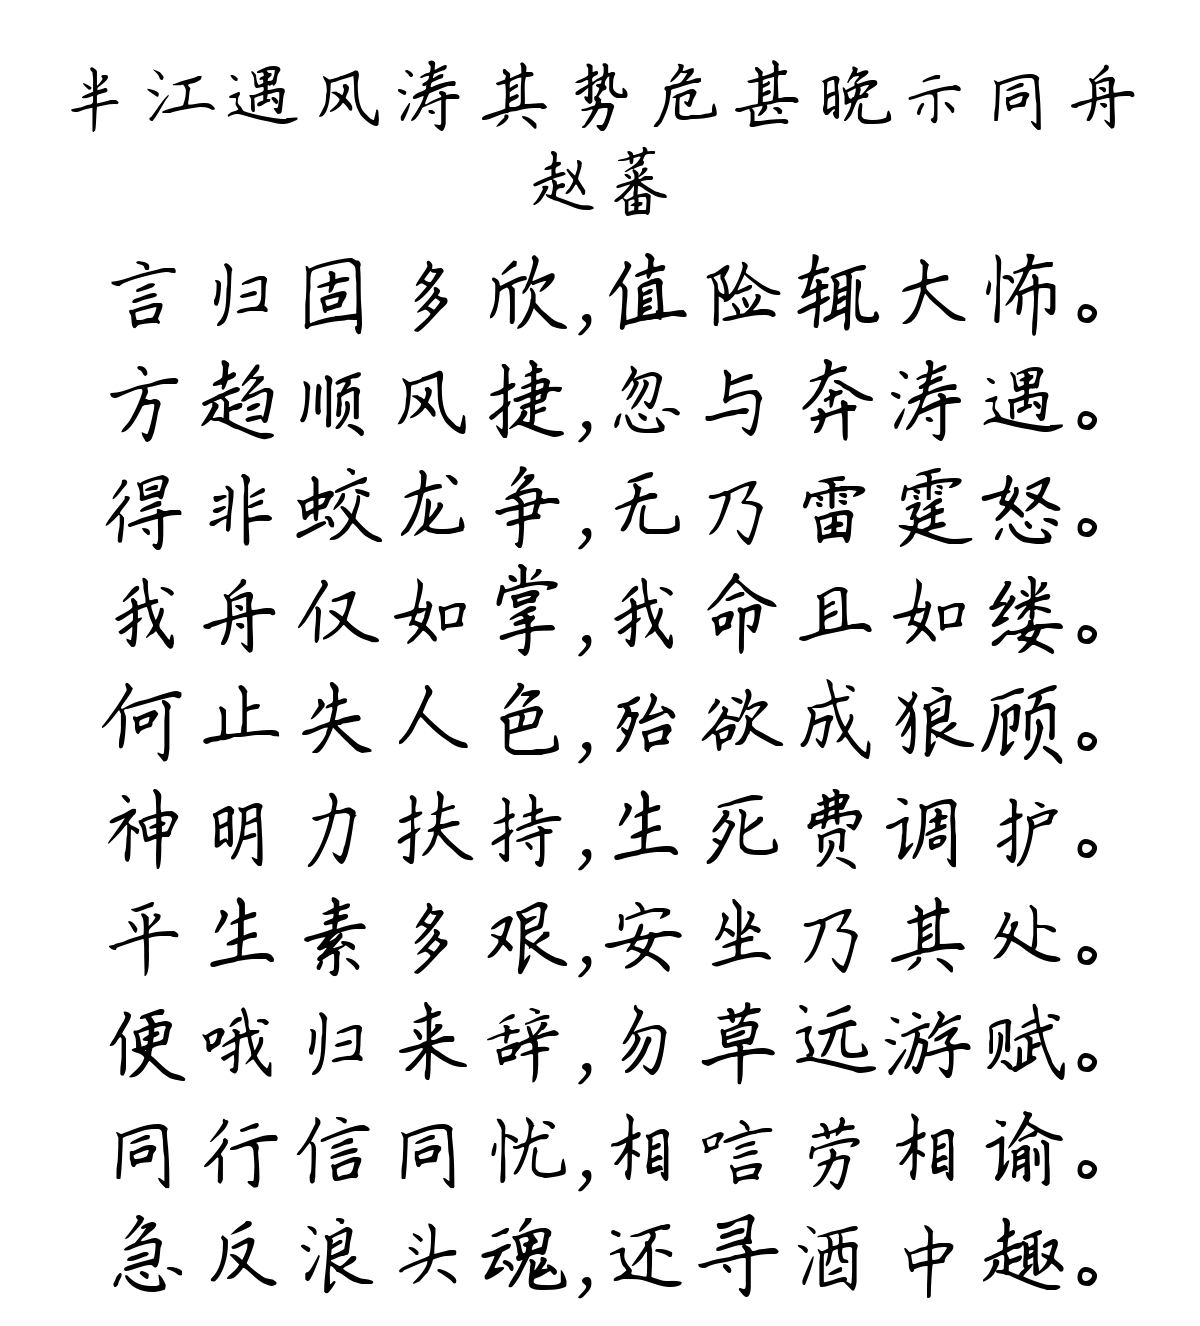 半江遇风涛其势危甚晚示同舟
赵蕃
言归固多欣,值险辄大怖。
方趋顺风捷,忽与奔涛遇。
得非蛟龙争,无乃雷霆怒。
我舟仅如掌,我命且如缕。
何止失人色,殆欲成狼顾。
神明力扶持,生死费调护。
平生素多艰,安坐乃其处。
便哦归来辞,勿草远游赋。
同行信同忧,相唁劳相谕。
急反浪头魂,还寻酒中趣。